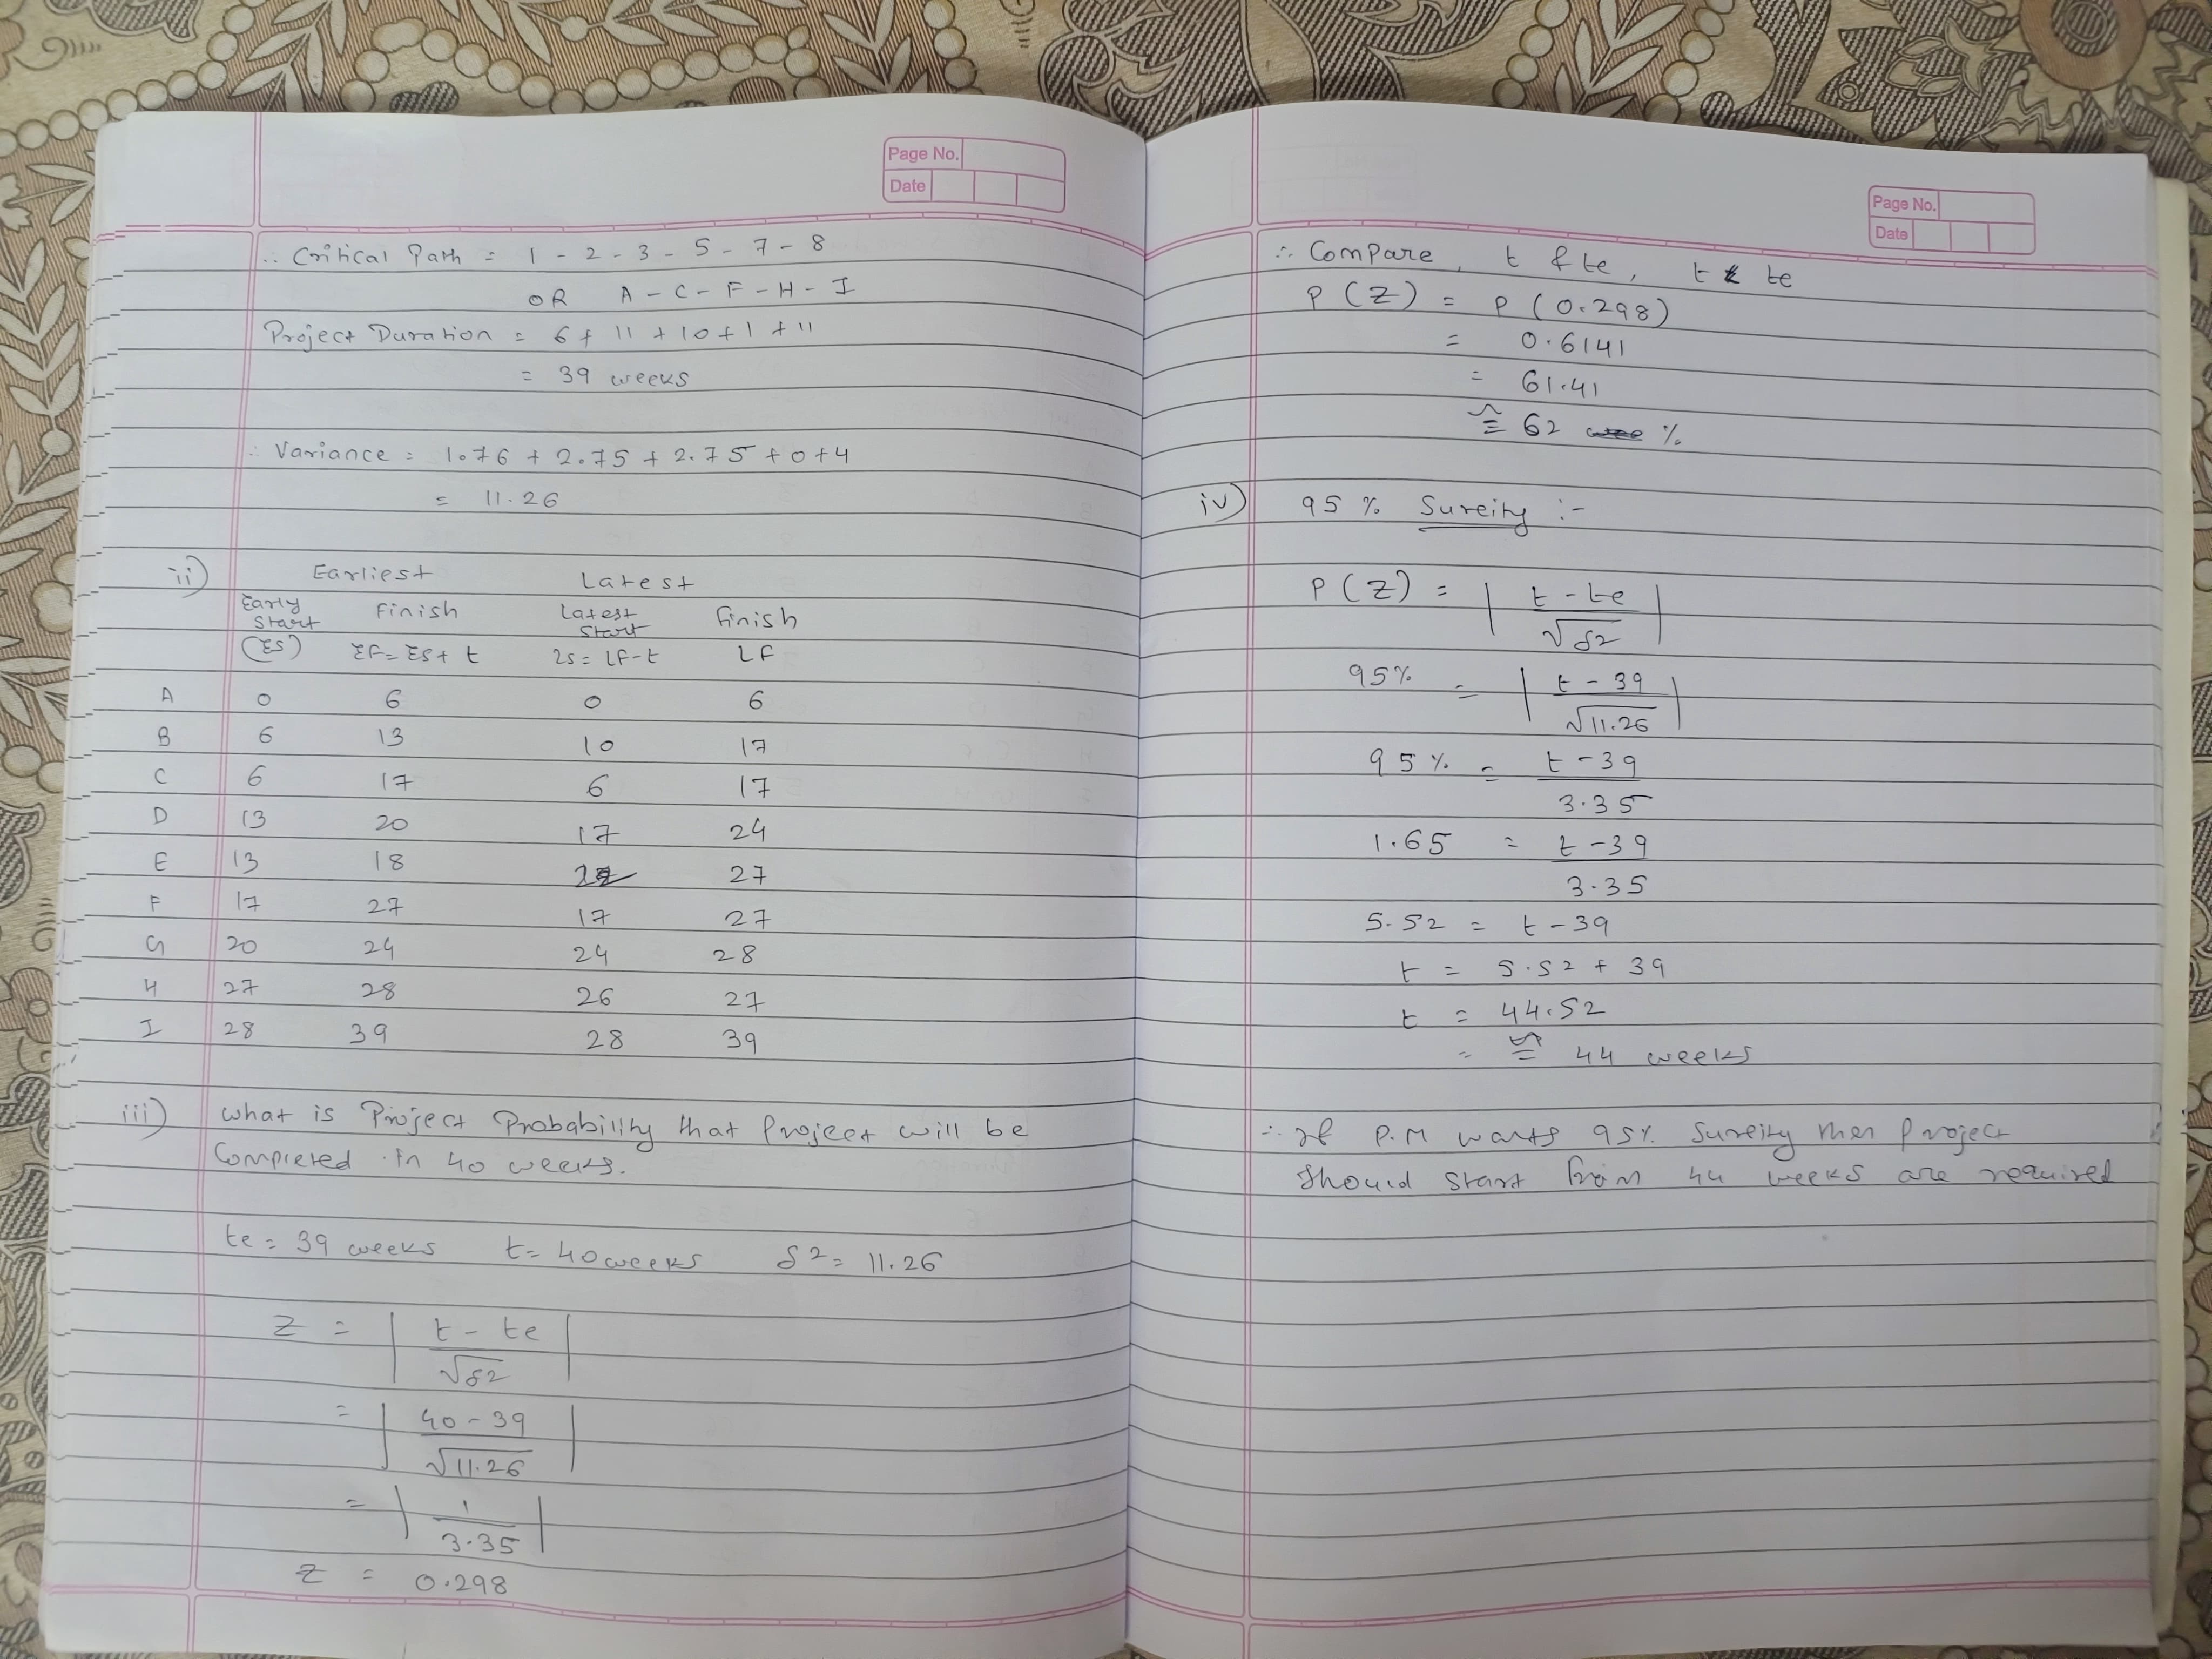 Page No.
Date
∴ Critical Path = 1 - 2 - 3 - 5 - 7 - 8
OR A - C - F - H - I
Project Duration = 6 + 11 + 10 + 1 + 11
= 39 weeks
∴ Variance = 1.76 + 2.75 + 2.75 + 0 + 4
= 11.26
ii) Earliest Latest
Early Start Finish Latest Start Finish
(ES) EF = ES + t LS = LF - t LF
A 0 6 0 6
B 6 13 10 17
C 6 17 6 17
D 13 20 17 24
E 13 18 27
F 17 27 17 27
G 20 24 24 28
H 27 28 26 27
I 28 39 28 39
iii) what is Project Probability that Project will be
Completed in 40 weeks.
te = 39 weeks t = 40 weeks δ2 = 11.26
Z = | t - te / √δ2 |
= | 40 - 39 / √11.26 |
= | 1 / 3.35 |
Z = 0.298
Page No.
Date
∴ Compare, t & te, t te
P (Z) = P (0.298)
= 0.6141
= 61.41
≅ 62 %
iv) 95 % Sureity :-
P (Z) = | t - te / √δ2 |
95% = | t - 39 / √11.26 |
95 % = t - 39 / 3.35
1.65 = t - 39 / 3.35
5.52 = t - 39
t = 5.52 + 39
t = 44.52
= ≅ 44 weeks
∴ If P.M wants 95% Sureity then Project
Should Start from 44 weeks are required